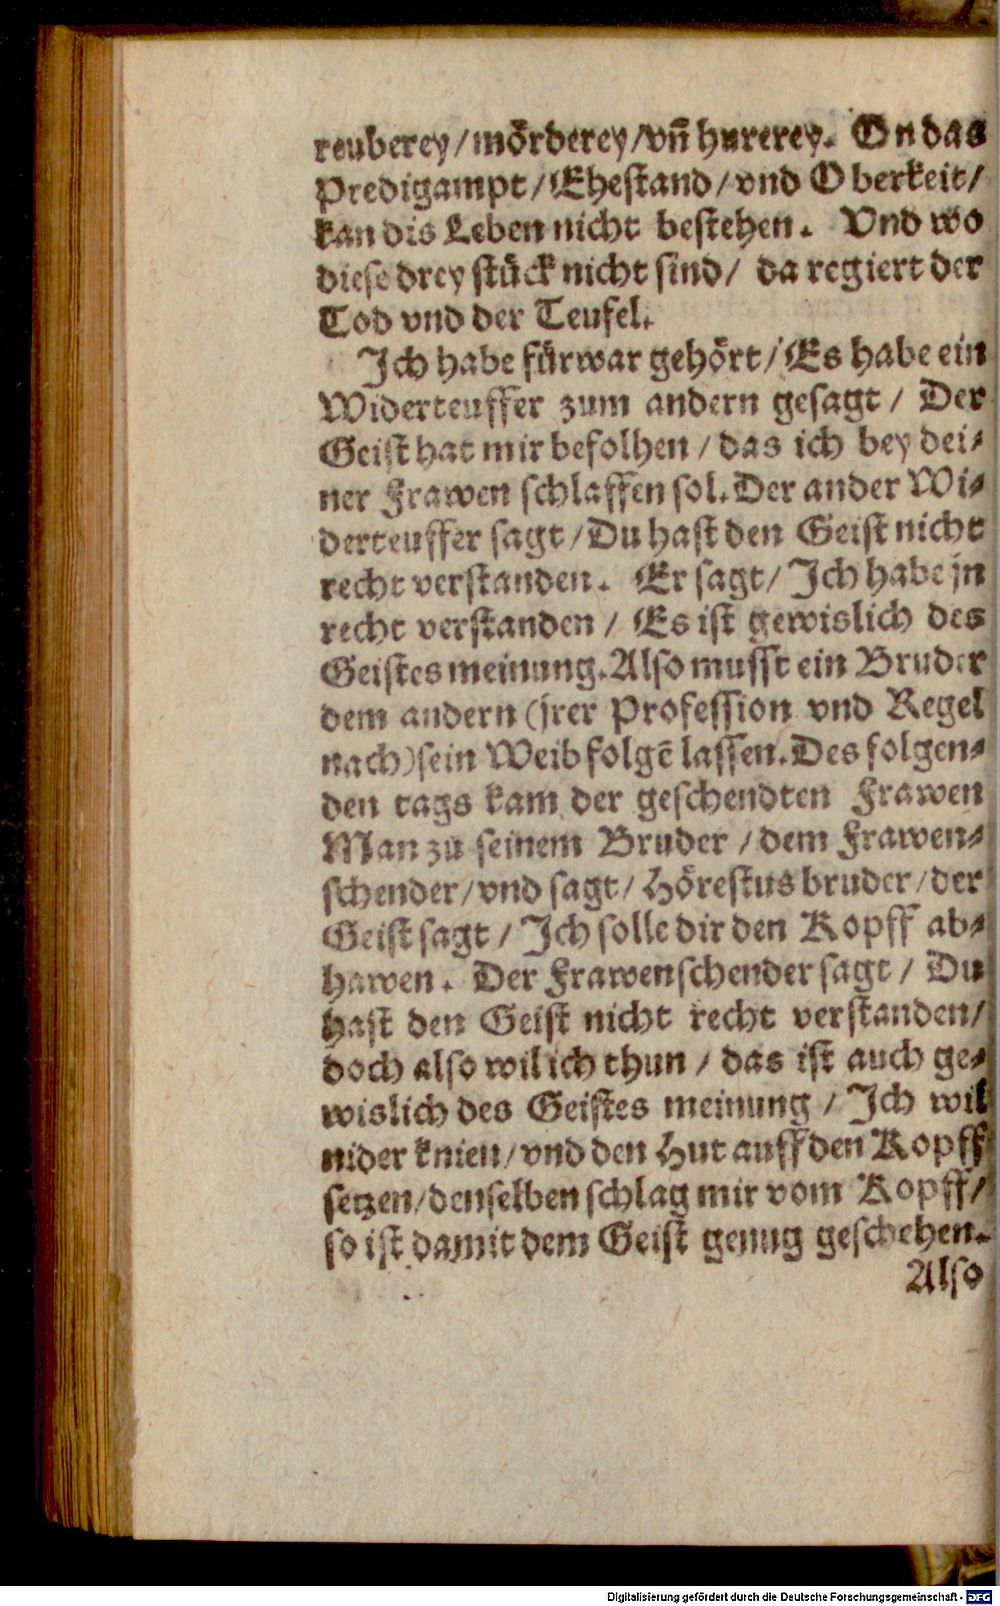 reuberey/mörderey/vñ hurerey. On das
Predigampt/Ehestand/vnd Oberkeit/
kan dis Leben nicht bestehen. Vnd wo
diese drey stück nicht sind/ da regiert der
Tod vnd der Teufel.
Ich habe fürwar gehört/Es habe ein
Widerteuffer zum andern gesagt / Der
Geist hat mir befolhen / das ich bey dei-
ner Frawen schlaffen sol. Der ander Wi-
derteuffer sagt/Du hast den Geist nicht
recht verstanden. Er sagt/ Ich habe jn
recht verstanden / Es ist gewislich des
Geistes meinung. Also musst ein Bruder
dem andern (jrer Profession vnd Regel
nach) sein Weib folgē lassen. Des folgen-
den tags kam der geschendten Frawen
Man zu seinem Bruder / dem Frawen-
schender/vnd sagt/ Hörestus bruder/der
Geist sagt / Ich solle dir den Kopff ab-
hawen. Der Frawenschender sagt / Du
hast den Geist nicht recht verstanden/
doch also wil ich thun / das ist auch ge-
wislich des Geistes meinung / Ich wil
nider knien/vnd den Hut auff den Kopff
setzen/denselben schlag mir vom Kopff/
so ist damit dem Geist genug geschehen.
Also
Digitalisierung gefördert durch die Deutsche Forschungsgemeinschaft - DFG